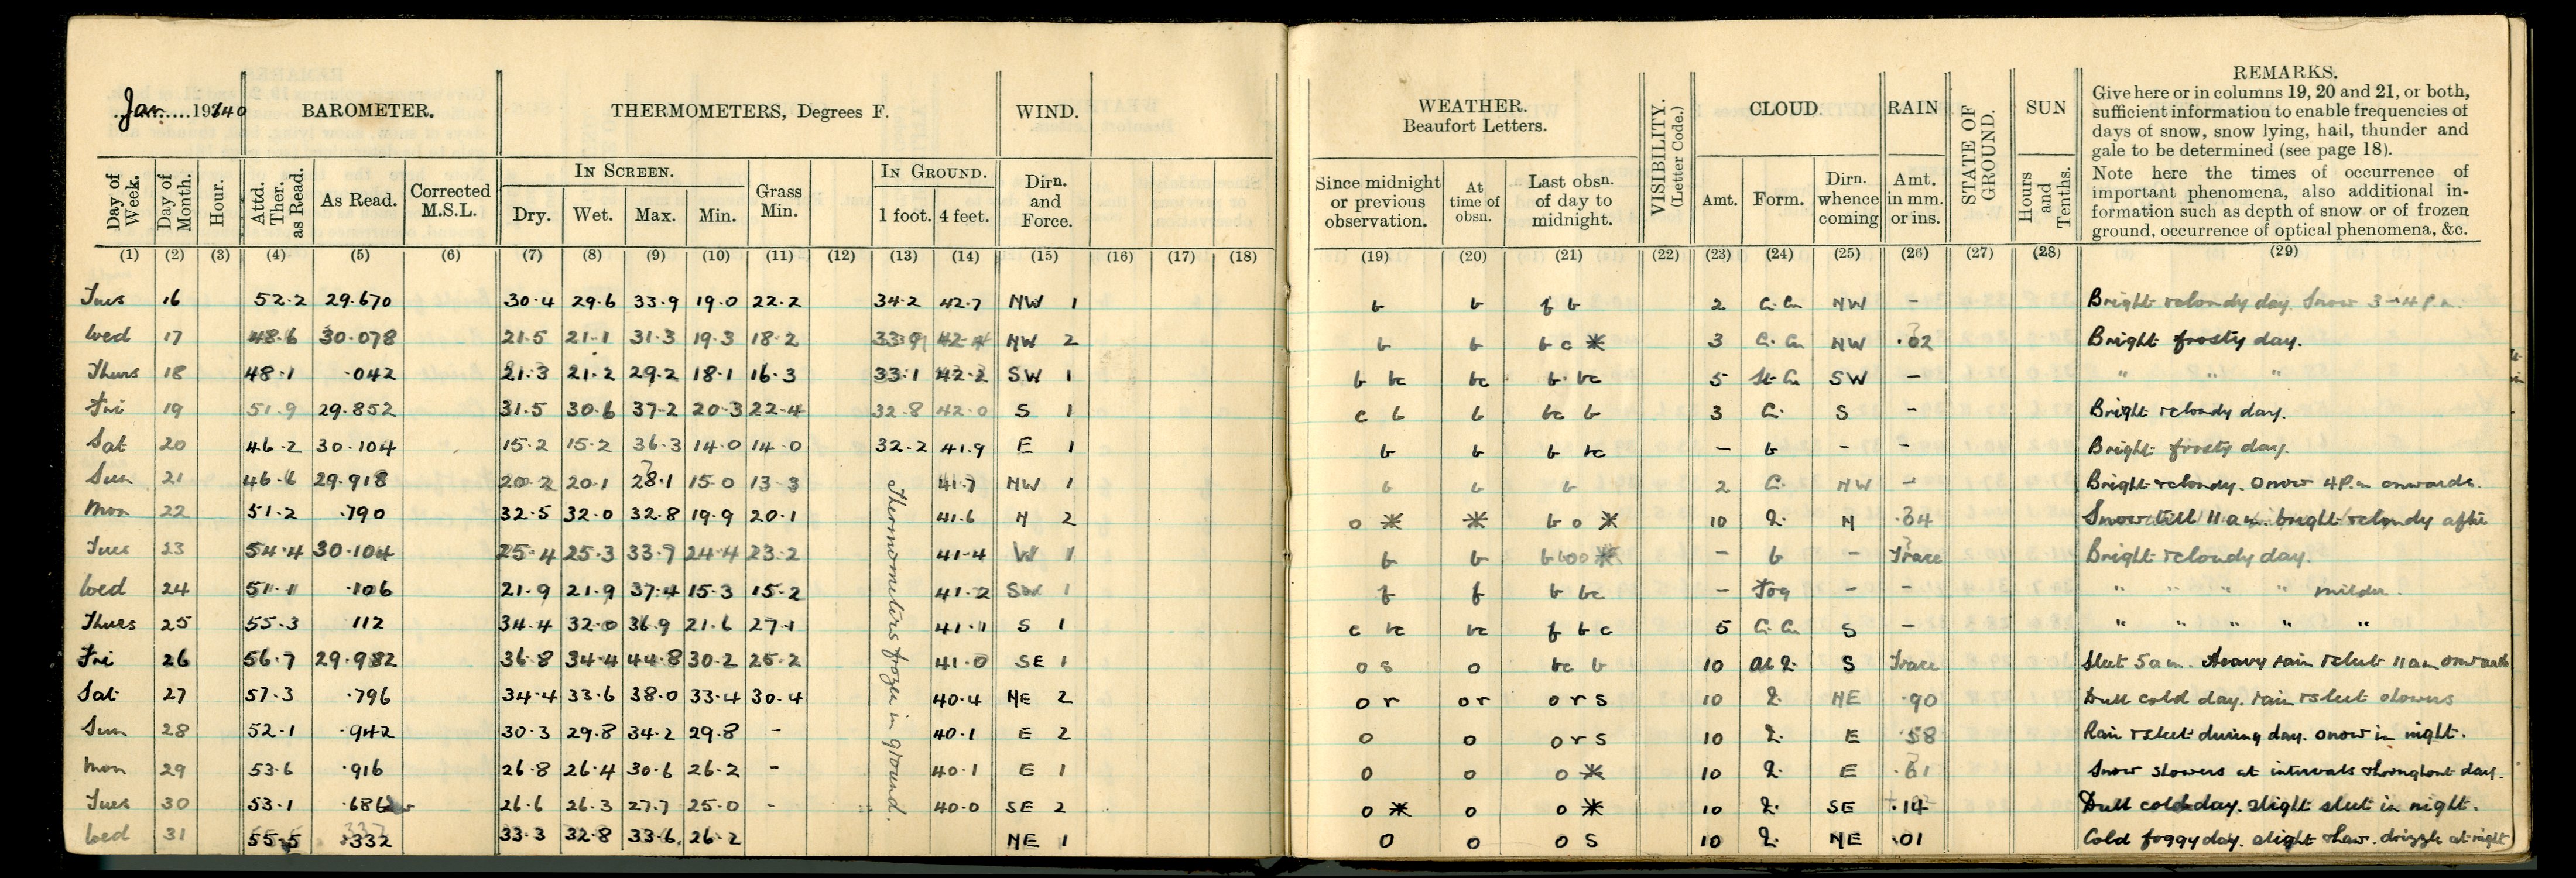 Jan. 1940
BAROMETER.
THERMOMETERS, Degrees F.
WIND.
WEATHER.
Beaufort Letters.
VISIBILITY.
(Letter Code.)
CLOUD.
RAIN
STATE OF
GROUND.
SUN
REMARKS.
Give here or in columns 19, 20 and 21, or both,
sufficient information to enable frequencies of
days of snow, snow lying, hail, thunder and
gale to be determined (see page 18).
Note here the times of occurrence of
important phenomena, also additional in-
formation such as depth of snow or of frozen
ground, occurrence of optical phenomena, &c.
Day of Week.
Day of Month.
Hour.
Attd. Ther. as Read.
As Read.
Corrected M.S.L.
IN SCREEN.
Dry. Wet. Max. Min.
Grass Min.
IN GROUND.
1 foot. 4 feet.
Dirn. and Force.
Since midnight or previous observation.
At time of obsn.
Last obsn. of day to midnight.
Amt. Form.
Dirn. whence coming
Amt. in mm. or ins.
Hours and Tenths.
(1) (2) (3) (4) (5) (6) (7) (8) (9) (10) (11) (12) (13) (14) (15) (16) (17) (18) (19) (20) (21) (22) (23) (24) (25) (26) (27) (28) (29)
Tues 16 52.2 29.670 30.4 29.6 33.9 19.0 22.2 34.2 42.7 NW 1 b b f b 2 NW - Bright & cloudy day. Snow 3-4 P.m.
Wed 17 48.6 30.078 21.5 21.1 31.3 19.3 18.2 33.9 42.4 NW 2 b b b c * 3 NW .02 Bright frosty day.
Thurs 18 48.1 .042 21.3 21.2 29.2 18.1 16.3 33.1 42.2 SW 1 b bc bc b bc 5 SW - " " "
Fri 19 51.9 29.852 31.5 30.6 37.2 20.3 22.4 32.8 42.0 S 1 c b b bc b 3 C. S - Bright & cloudy day.
Sat 20 46.2 30.104 15.2 15.2 36.3 14.0 14.0 32.2 41.9 E 1 b b b bc - b - - Bright frosty day.
Sun 21 46.6 29.918 20.2 20.1 28.1 15.0 13.3 41.7 NW 1 b b b 2 C. NW - Bright & cloudy. Snow 4 P.m onwards.
Mon 22 51.2 .790 32.5 32.0 32.8 19.9 20.1 41.6 N 2 o * * b o * 10 N .34 Snow till 11 a.m. bright & cloudy after
Tues 23 54.4 30.104 25.4 25.3 33.7 24.4 23.2 41.4 W 1 b b - b - Trace Bright & cloudy day.
Wed 24 51.1 .106 21.9 21.9 37.4 15.3 15.2 41.2 SW 1 f f b bc - Fog - - " " " " milder.
Thurs 25 55.3 112 34.4 32.0 36.9 21.6 27.1 41.1 S 1 c bc bc f b c 5 S - " " " " "
Fri 26 56.7 29.982 36.8 34.4 44.8 30.2 25.2 41.0 SE 1 o s o bc b 10 S Trace Sleet 5 a.m. Heavy rain & sleet 11 a.m onwards
Sat 27 57.3 .796 34.4 33.6 38.0 33.4 30.4 40.4 NE 2 o r o r o r s 10 NE .90 Dull cold day. rain & sleet showers
Sun 28 52.1 .942 30.3 29.8 34.2 29.8 - 40.1 E 2 o o o r s 10 E .58 Rain & sleet during day. snow in night.
Mon 29 53.6 .916 26.8 26.4 30.6 26.2 - 40.1 E 1 o o o * 10 E .61 Snow showers at intervals throughout day.
Tues 30 53.1 .686 26.6 26.3 27.7 25.0 - 40.0 SE 2 o * o o * 10 SE .14 Dull cold day. slight sleet in night.
Wed 31 55.5 .332 33.3 32.8 33.6 26.2 NE 1 o o o s 10 NE .01 Cold foggy day. slight thaw. drizzle at night
Thermometers froze in ground.